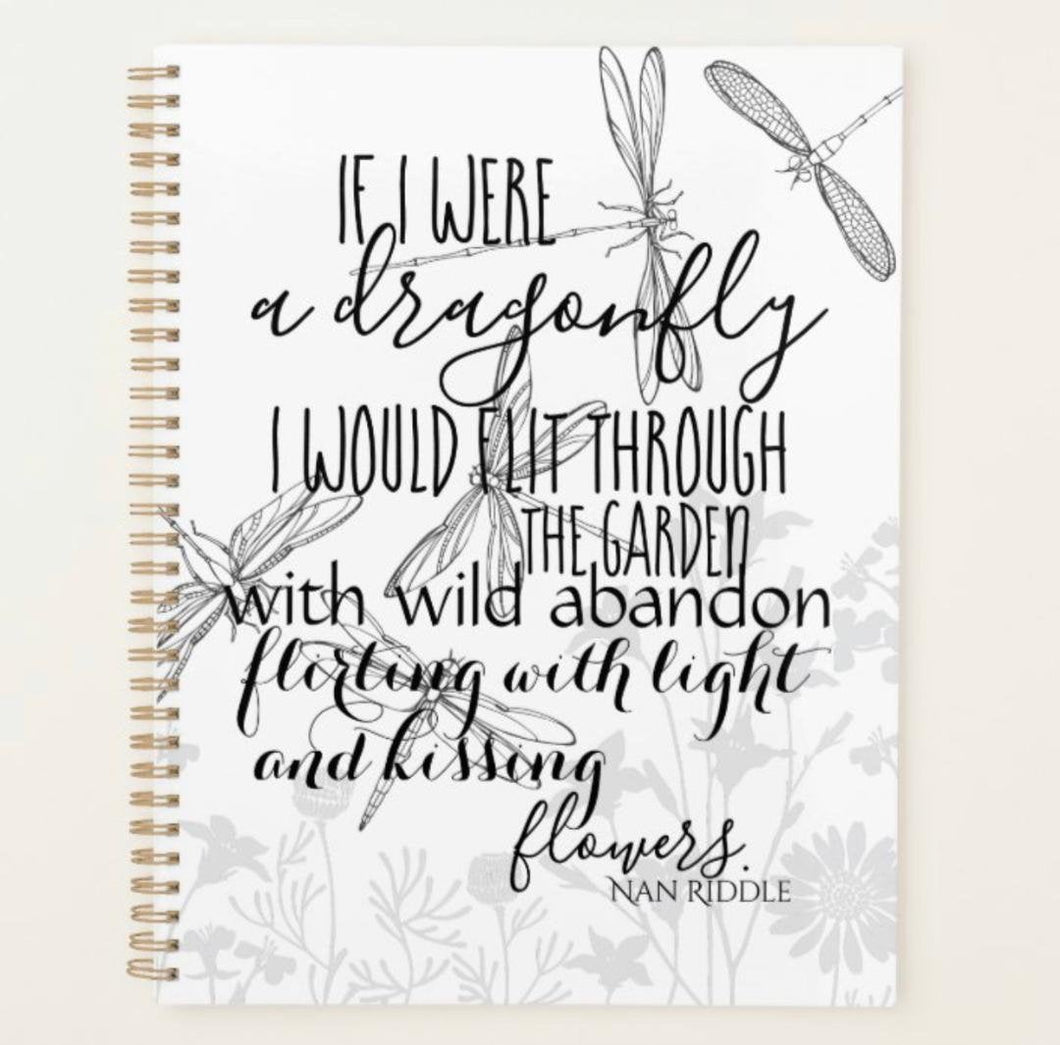 IF I WERE
a dragonfly
I WOULD FLIT THROUGH
THE GARDEN
with wild abandon
flirting with light
and kissing
flowers.
NAN RIDDLE